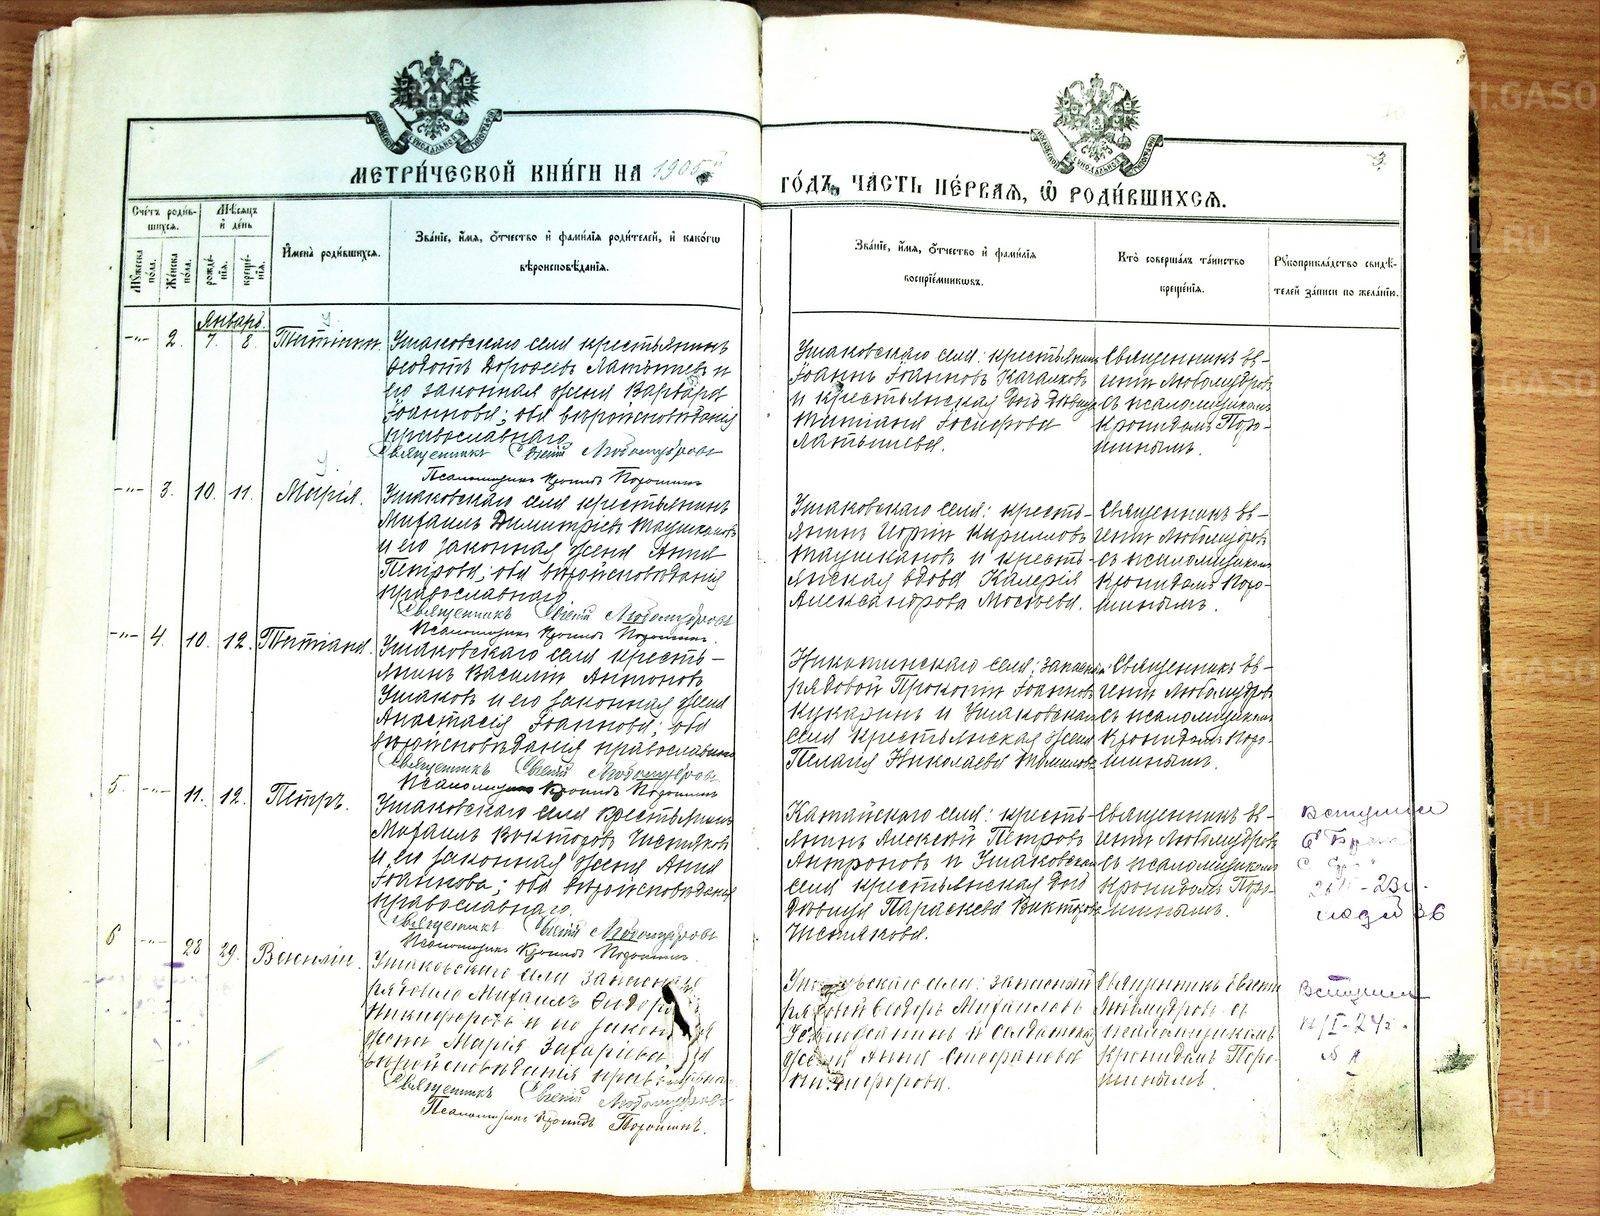 МЕТРИ́ЧЕСКОЙ КНИ́ГИ НА 1905й
ГО́ДЪ, ЧА́СТЬ ПЕ́РВАЯ, Ѡ҆ РОДИ́ВШИХСѦ.
3.
Сче́тъ роди́в-
шихсѧ.
Мꙋ́жеска по́ла.
Же́нска по́ла.
Мѣ́сѧцъ
и҆ де́нь
рожде́-
нїѧ.
креще́-
нїѧ.
И҆мена̀ роди́вшихсѧ.
Зва́нїе, и҆́мѧ, ѻ҆́тчество и҆ фами́лїѧ роди́телей, и҆ како́гѡ
вѣроисповѣ́данїѧ.
Зва́нїе, и҆́мѧ, ѻ҆́тчество и҆ фами́лїѧ
воспрїе́мникѡвъ.
Кто̀ соверша́лъ та́инство
креще́нїѧ.
Рꙋкоприкла́дство свидѣ́-
телей за́писи по жела́нїю.
Январь.
-"- 2. 7. 8. Татіана.
Ушаковскаго села крестьянинъ
Ѳеодотъ Дороѳеевъ Латышевъ и
его законная жена Варвара
Іоаннова; оба вѣроисповѣданія
православнаго.
Священникъ Евгеній Любомудровъ
Псаломщикъ Кронидъ Порошинъ
Ушаковскаго села: крестьянинъ
Іоаннъ Іоанновъ Качалковъ
и крестьянская дочь дѣвица
Татіана Іосифова
Латышева.
Священникъ Ев-
геній Любомудровъ
съ псаломщикомъ
Кронидомъ Поро-
шинымъ.
-"- 3. 10. 11. Марія.
Ушаковскаго села крестьянинъ
Михаилъ Димитріевъ Таушкановъ
и его законная жена Анна
Петрова; оба вѣроисповѣданія
православнаго.
Священникъ Евгеній Любомудровъ
Псаломщикъ Кронидъ Порошинъ.
Ушаковскаго села: кресть-
янинъ Кирилловъ
Таушкановъ и кресть-
янская вдова Калерія
Александрова
Священникъ Ев-
геній Любомудровъ
съ псаломщикомъ
Кронидомъ Поро-
шинымъ.
-"- 4. 10. 12. Татіана.
Ушаковскаго села кресть-
янинъ Василій Антоновъ
Ушаковъ и его законная жена
Анастасія Іоаннова; оба
вѣроисповѣданія православнаго
Священникъ Евгеній Любомудровъ
Псаломщикъ Кронидъ Порошинъ
Никитинскаго села: запасный
рядовой Прокопій Іоанновъ
Кукаринъ и Ушаковскаго
села крестьянская жена
Пелагія Николаева
Священникъ Ев-
геній Любомудровъ
съ псаломщикомъ
Кронидомъ Поро-
шинымъ.
5 -"- 11. 12. Петръ.
Ушаковскаго села крестьянинъ
Михаилъ Викторовъ Чистяковъ
и его законная жена Анна
Іоаннова; оба вѣроисповѣданія
православнаго.
Священникъ Евгеній Любомудровъ
Псаломщикъ Кронидъ Порошинъ.
Катайскаго села: кресть-
янинъ Алексѣй Петровъ
Антроповъ и Ушаковскаго
села крестьянская дочь
дѣвица Параскева Викторова
Чистякова.
Священникъ Ев-
геній Любомудровъ
съ псаломщикомъ
Кронидомъ Поро-
шинымъ.
Вступил
6 -"- 28 29.
Ушаковскаго села запасный
рядовой Михаилъ Ѳидоровъ
Никифоровъ и его законная
жена Марія Захаріева; оба
вѣроисповѣданія православна-
Священникъ Евгеній Любомудровъ
Псаломщикъ Кронидъ Порошинъ.
Ушаковскаго села: запасный
рядовой Михаиловъ
и солдатская
жена Анна Стефанова
Никифорова.
Священникъ Евгеній
Любомудровъ съ
псаломщикомъ
Кронидомъ Поро-
шинымъ.
Вступил